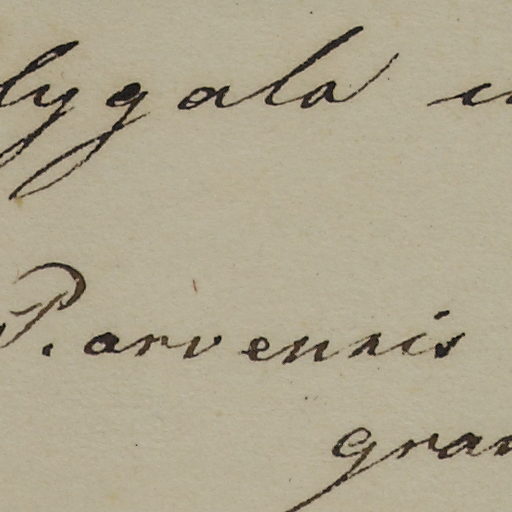 lygala
P. arvensis
gran